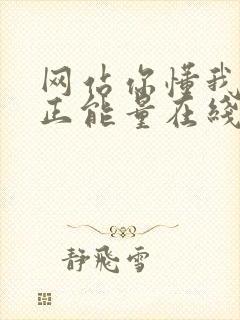 网站你懂我
正能量在线
静飛雪